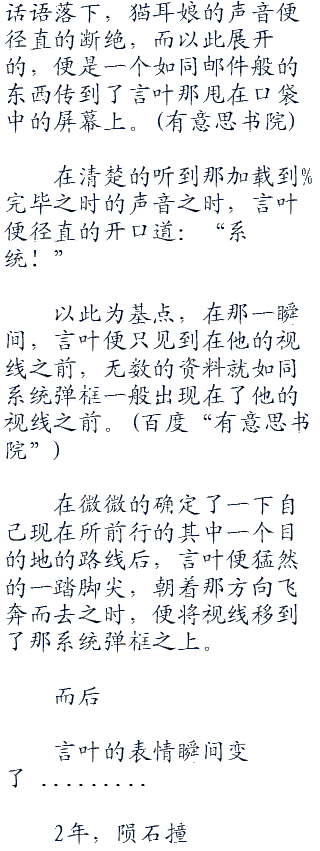 话语落下，猫耳娘的声音便
径直的断绝，而以此展开
的，便是一个如同邮件般的
东西传到了言叶那甩在口袋
中的屏幕上。(有意思书院)
在清楚的听到那加载到%
完毕之时的声音之时，言叶
便径直的开口道：“系
统！”
以此为基点，在那一瞬
间，言叶便只见到在他的视
线之前，无数的资料就如同
系统弹框一般出现在了他的
视线之前。(百度“有意思书
院”)
在微微的确定了一下自
己现在所前行的其中一个目
的地的路线后，言叶便猛然
的一踏脚尖，朝着那方向飞
奔而去之时，便将视线移到
了那系统弹框之上。
而后
言叶的表情瞬间变
了 .........
2年，陨石撞